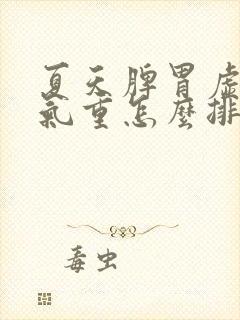 夏天脾胃虛
氣重怎麼排
毒虫